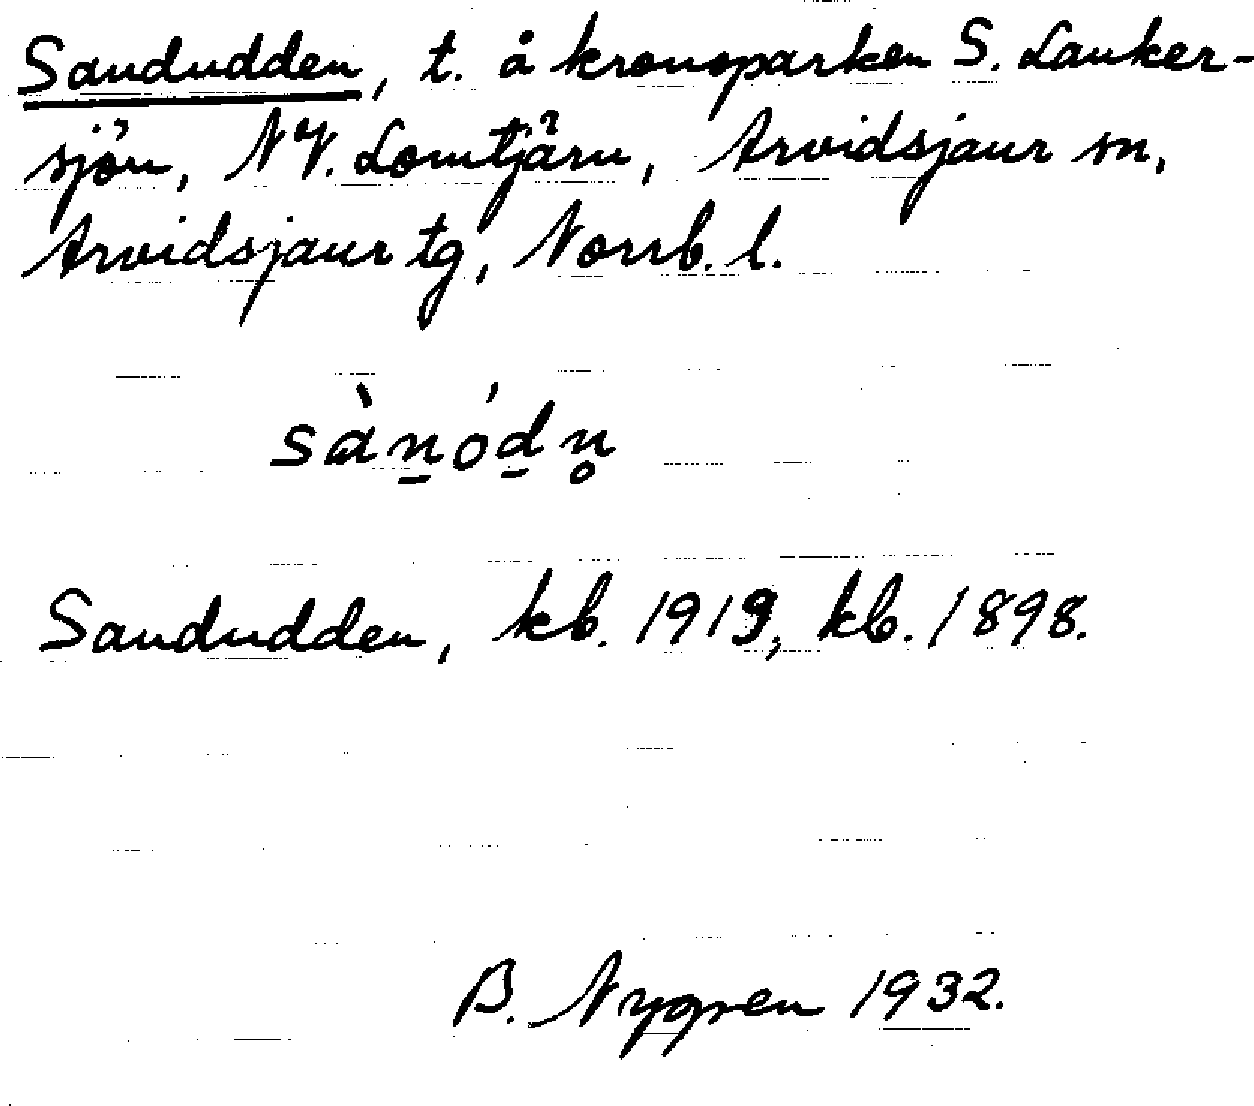 Sandudden, t. å kronoparken S. Lauker-
sjön, NV. Lomtjärn, Arvidsjaur sn,
Arvidsjaur tg, Norrb. l.
sàn̠ód̠n̥
Sandudden, kb. 1919, kb. 1898.
B. Nygren 1932.